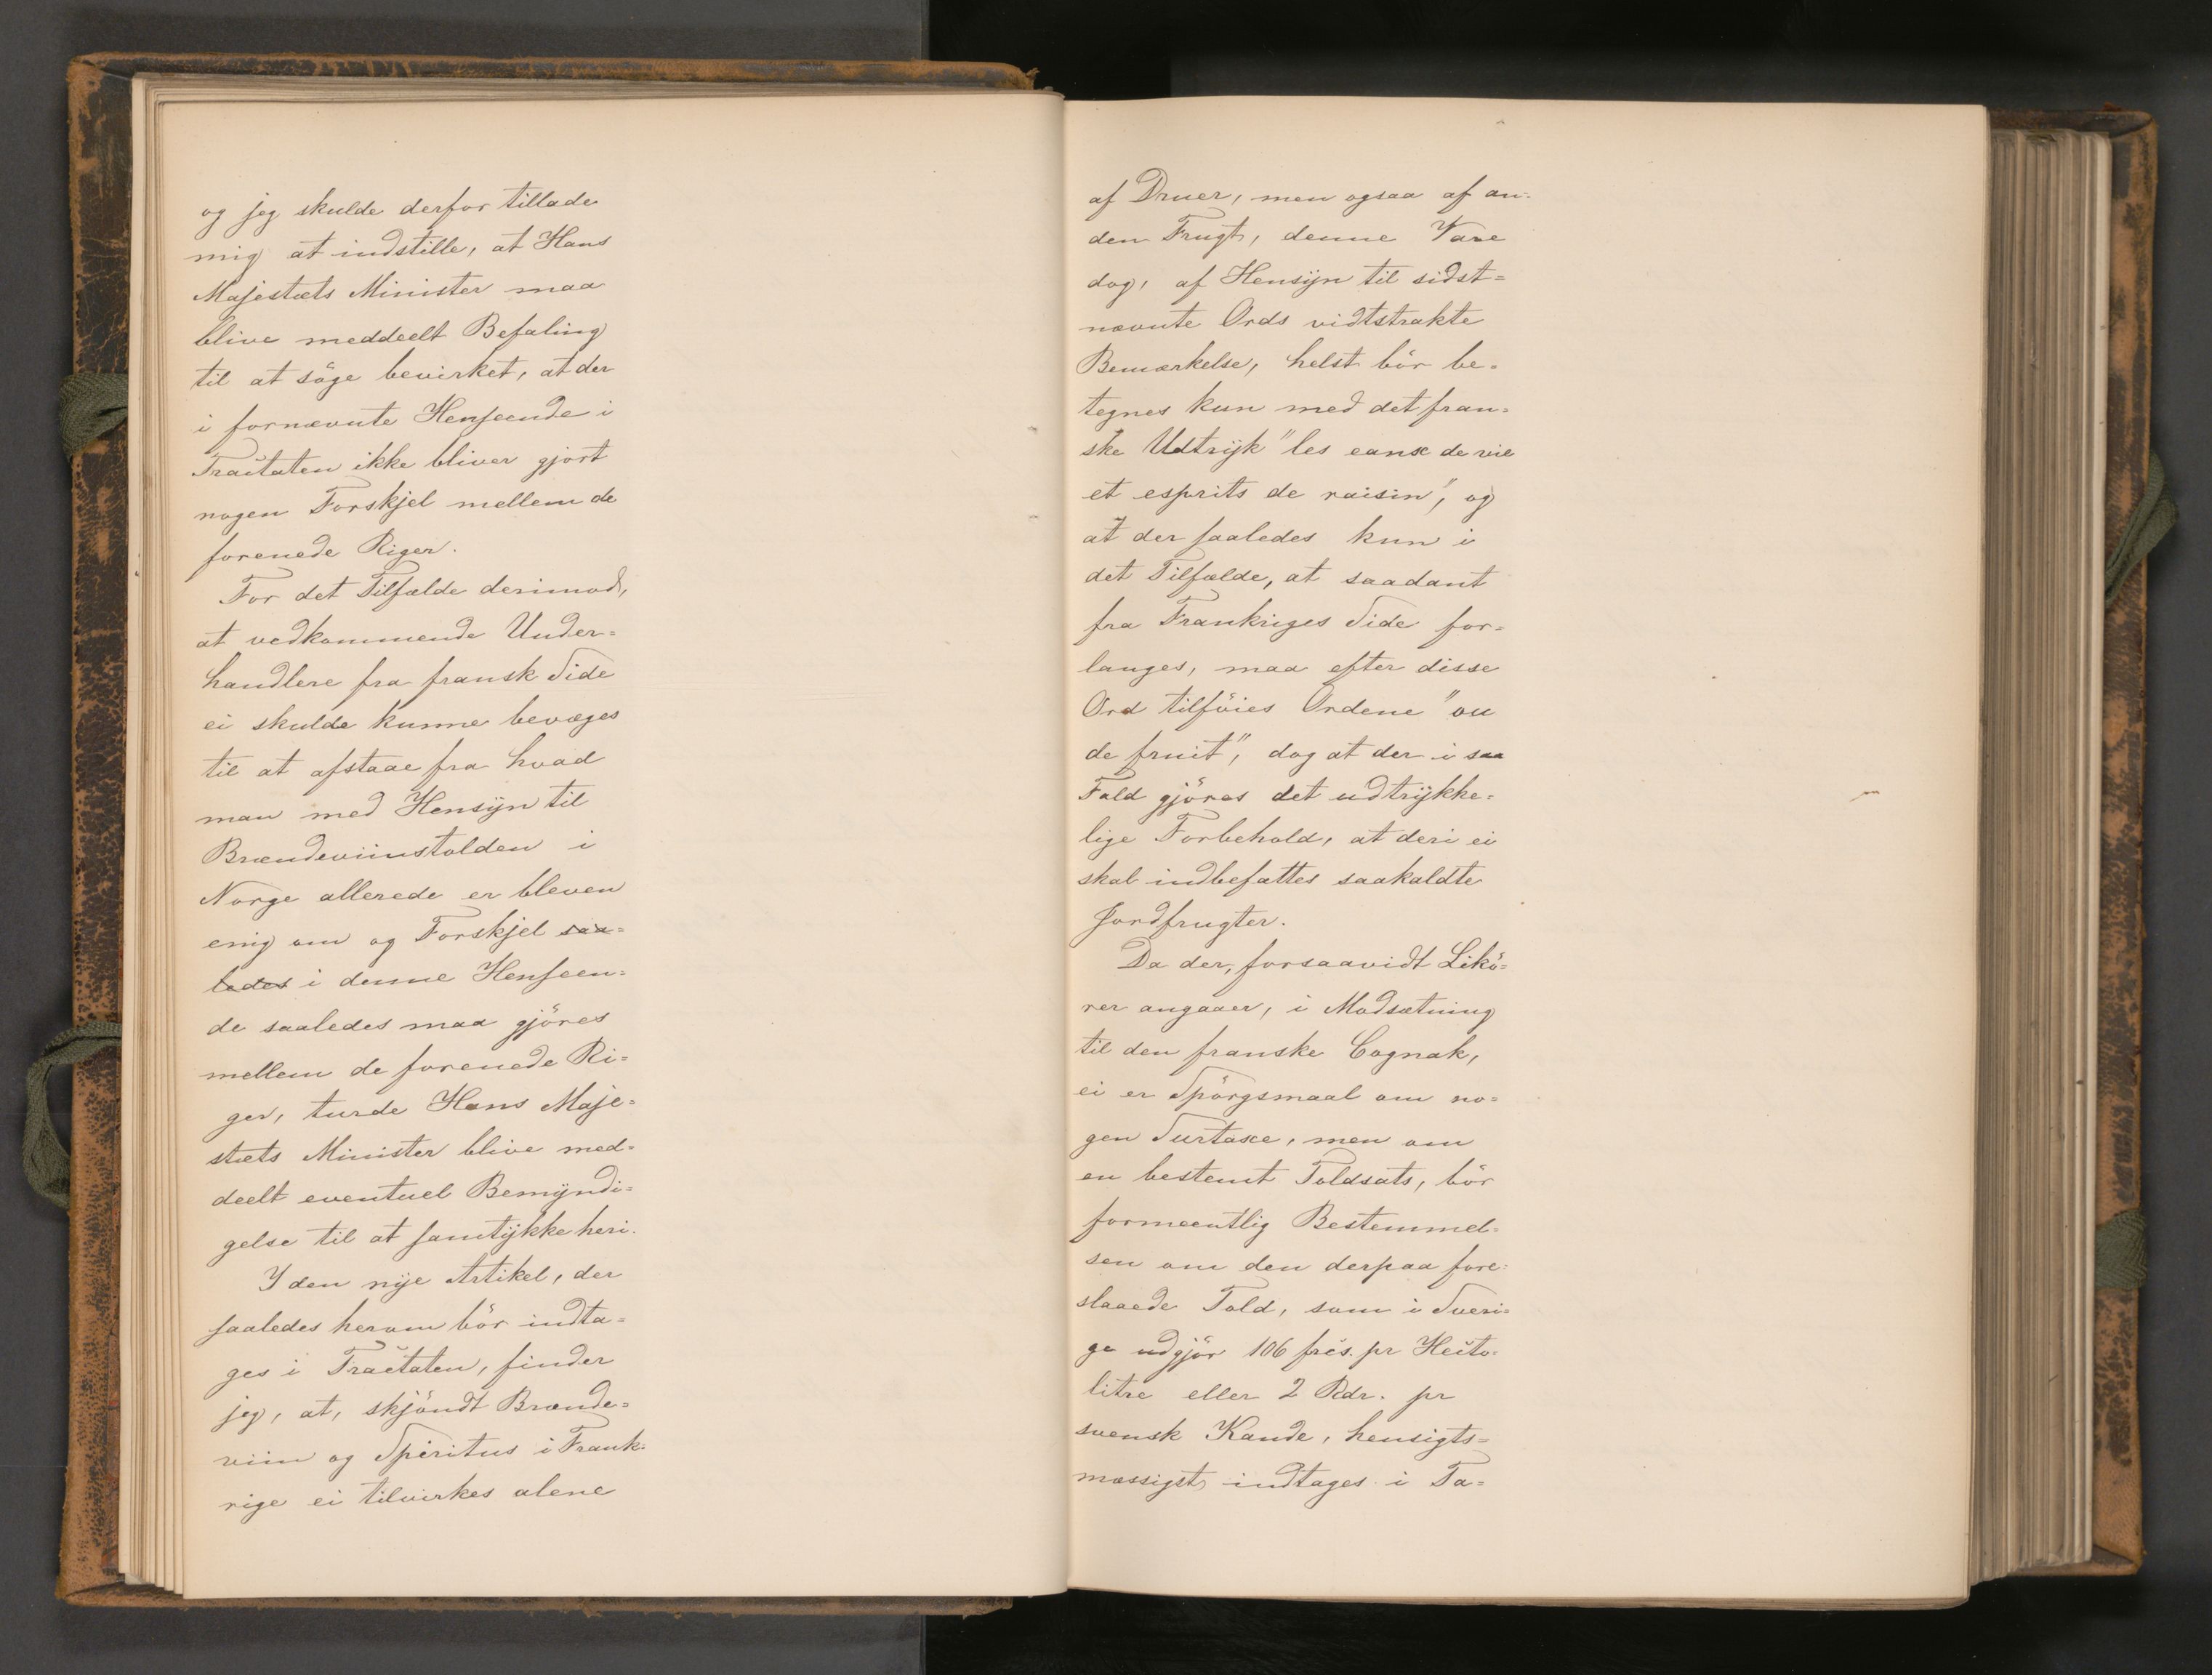 og jeg skulde derfor tillade
mig at indstille, at Hans
Majestæts Minister maa
blive meddeelt Befaling
til at söge bevirket, at der
i fornævnte Henseende i
Tractaten ikke bliver gjort
nogen Forskjel mellem de
forenede Riger.
For det Tilfælde derimod,
at vedkommende Under=
handlere fra fransk Side
ei skulde kunne bevæges
til at afstaae fra hvad
man med Hensÿn til
Brændeviinstolden i
Norge allerede er bleven
enig om og Forskjel saa=
ledes i denne Henseen=
de saaledes maa gjöres
mellem de forenede Ri=
ger, turde Hans Maje=
stæts Minister blive med=
deelt eventuel Bemÿndi=
gelse til at samtÿkke heri.
I den nÿe Artikel, der
saaledes herom bör indta=
ges i Tractaten, finder
jeg, at, skjöndt Brænde=
viin og Spiritus i Frank=
rige ei tilvirkes alene
af Druer, men ogsaa af an=
den Frugt, denne Vare
dog, af Hensÿn til sidst=
nævnte Ords vidtstrakte
Bemærkelse, helst bör be=
tegnes kun med det fran=
ske Udtrÿk "les eaux de vie
et esprits de raisin", og
at der saaledes kun i
det Tilfælde, at saadant
fra Frankriges Side for=
langes, maa efter disse
Ord tilföies Ordene "ou
de fruit", dog at der i saa
Fald gjöres det udtrÿkke=
lige Forbehold, at deri ei
skal indbefattes saakaldte
Jordfrugter.
Da der, forsaavidt Likö=
rer angaaer, i Modsætning
til den franske Cognak,
ei er Spörgsmaal om no=
gen Surtaxe, men om
en bestemt Toldsats, bör
formeentlig Bestemmel=
sen om den derpaa fore=
slaaede Told, som i Sveri=
ge udgjör 106 frcs. pr Hecto=
litre eller 2 Rdr. pr
svensk Kande, hensigts=
mæssigst indtages i Ta=